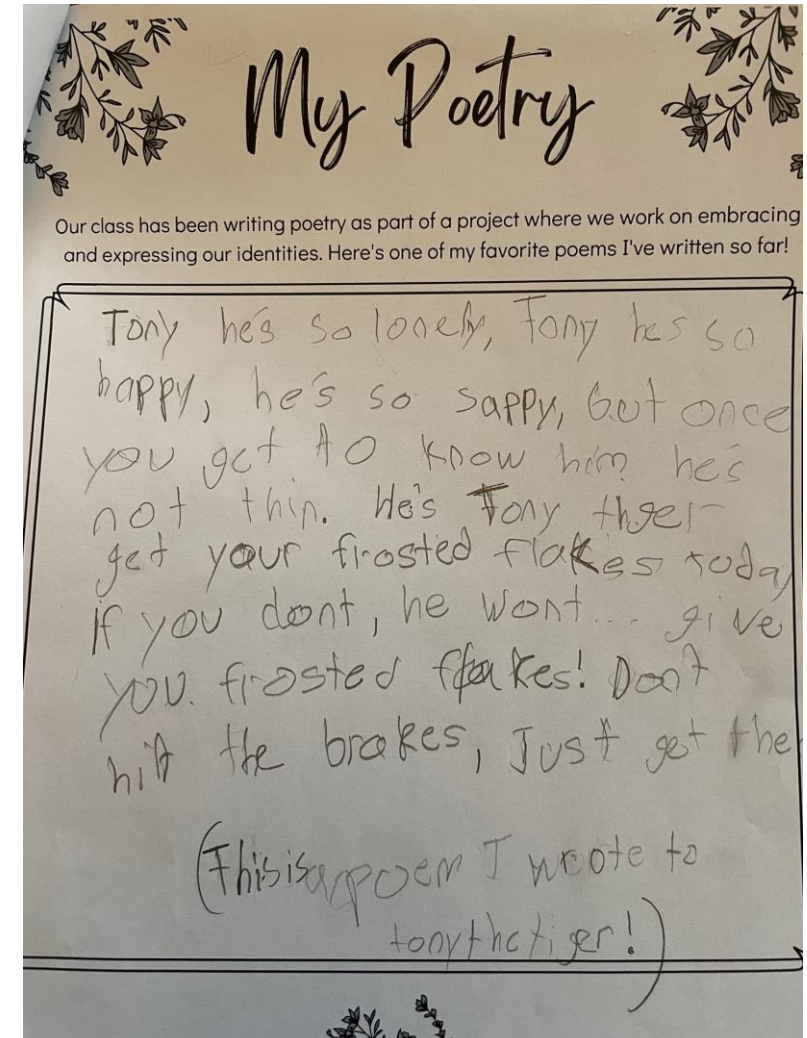 My Poetry
Our class has been writing poetry as part of a project where we work on embracing
and expressing our identities. Here's one of my favorite poems I've written so far!
Tony he's so lonely, Tony hes so
happy, he's so sappy, But once
you get to know him he's
not thin. He's Tony thger
get your frosted flakes today
if you dont, he wont... give
you. frosted flakes! Don't
hit the brakes, Just get the
(This is a poem I wrote to
tony the tiger!)